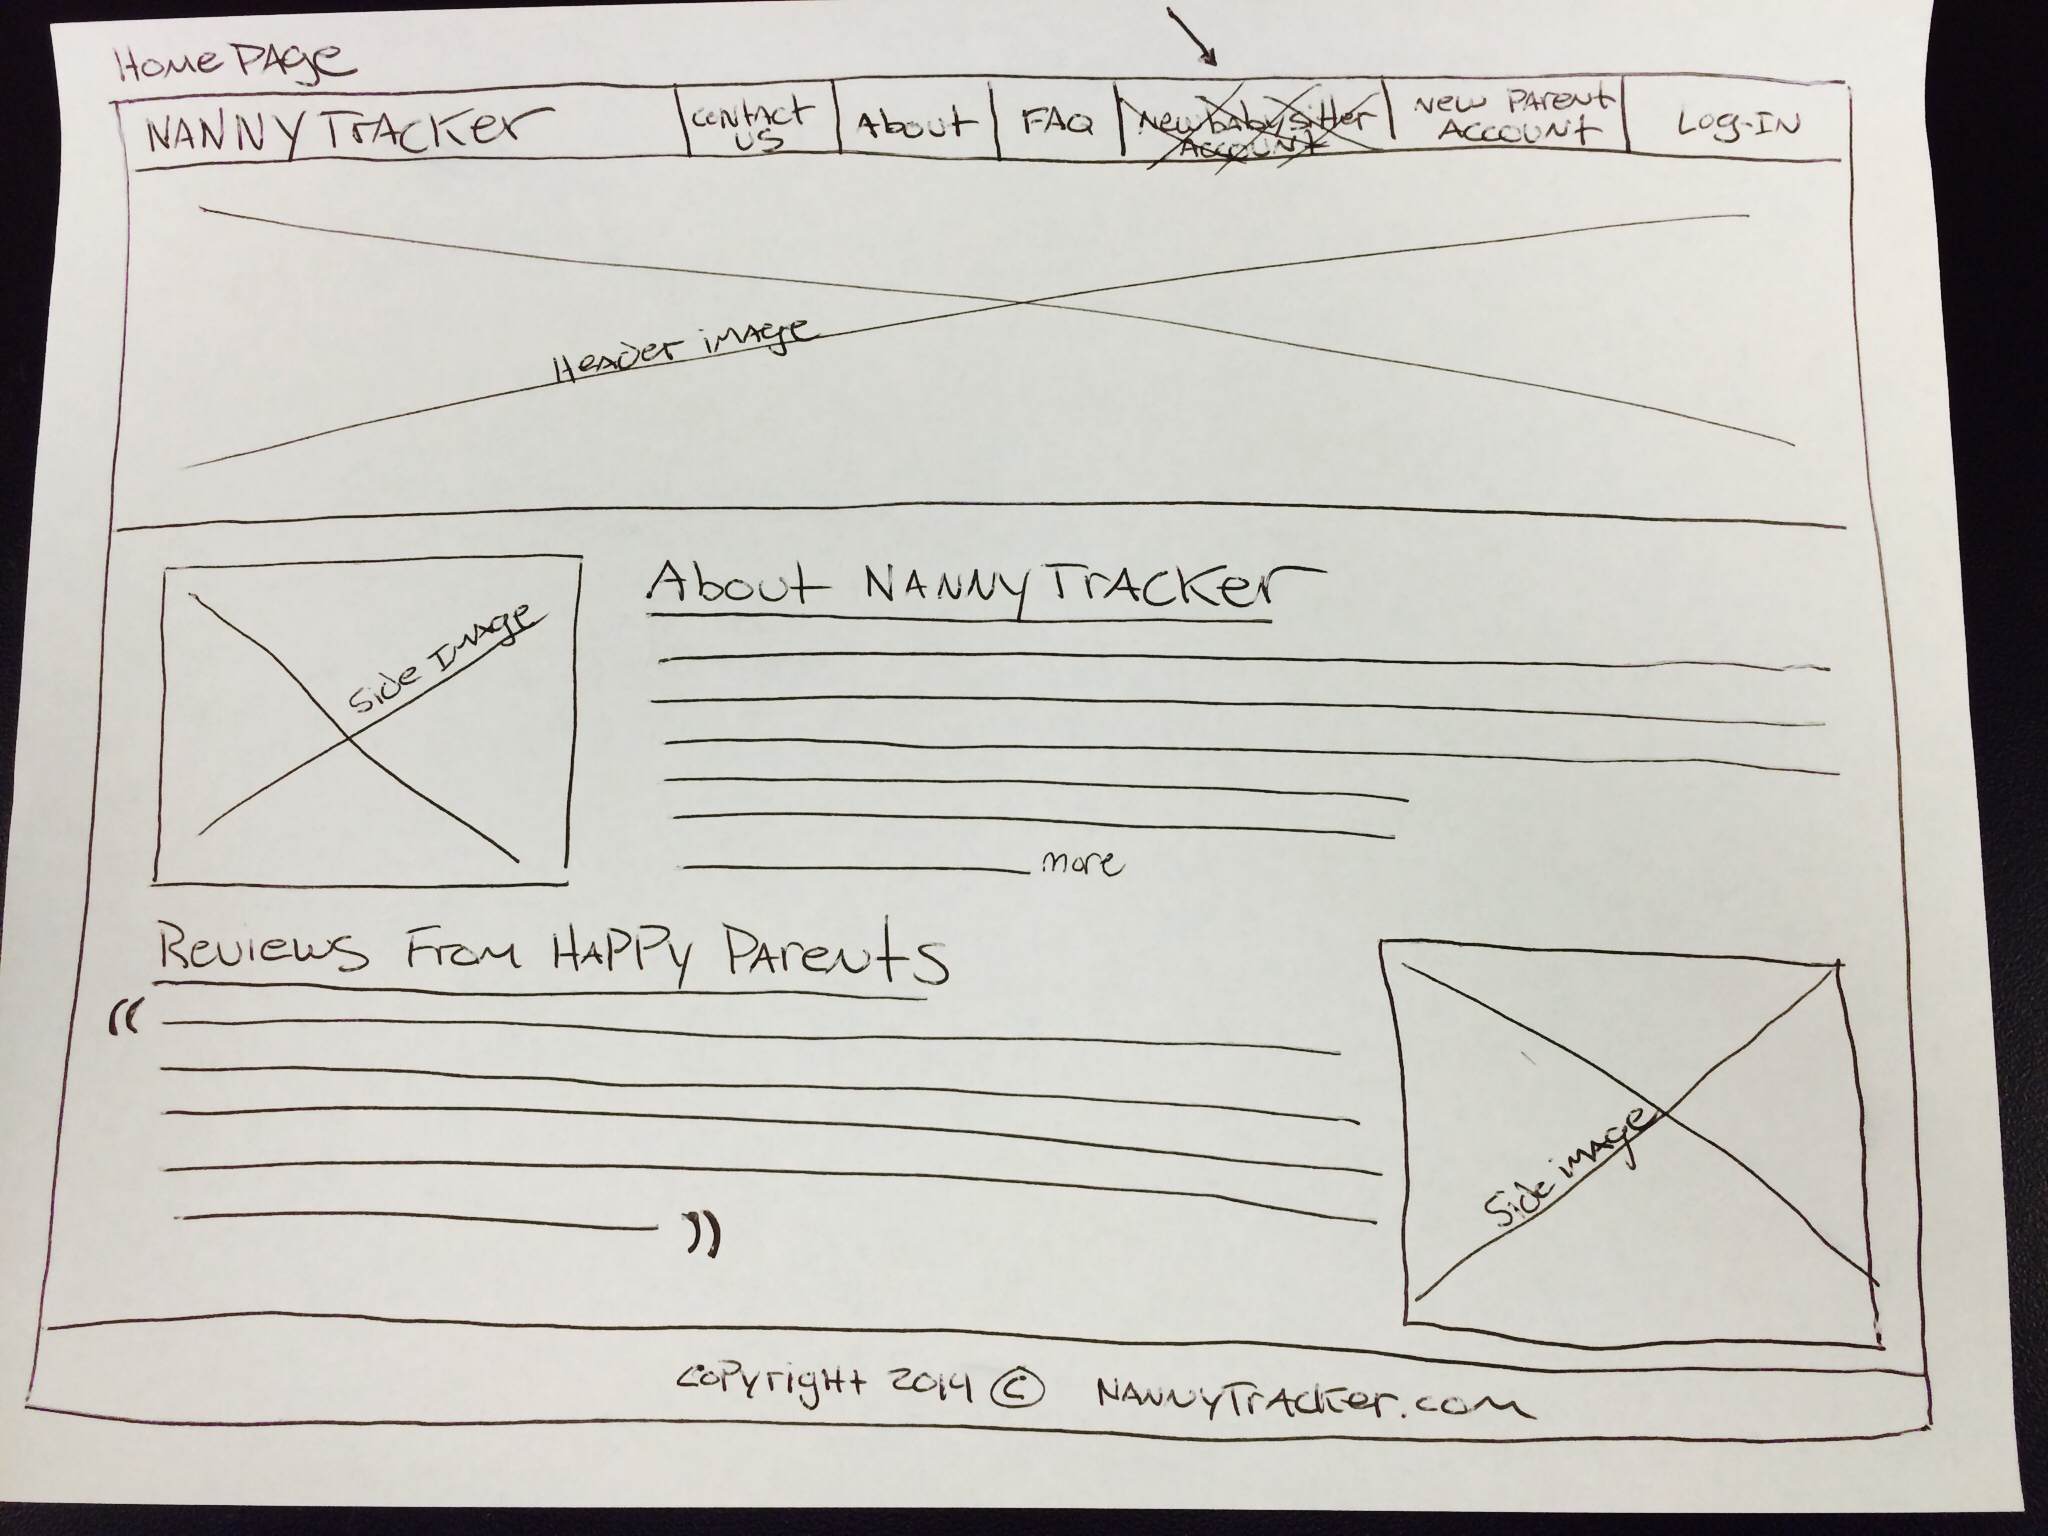 Home Page
Nanny Tracker
Contact
Us
About
FAQ
New babysitter
Account
New Parent
Account
Log-In
Header image
Side Image
About Nanny Tracker
more
Reviews From Happy Parents
“
”
Side image
Copyright 2014 © NannyTracker.com